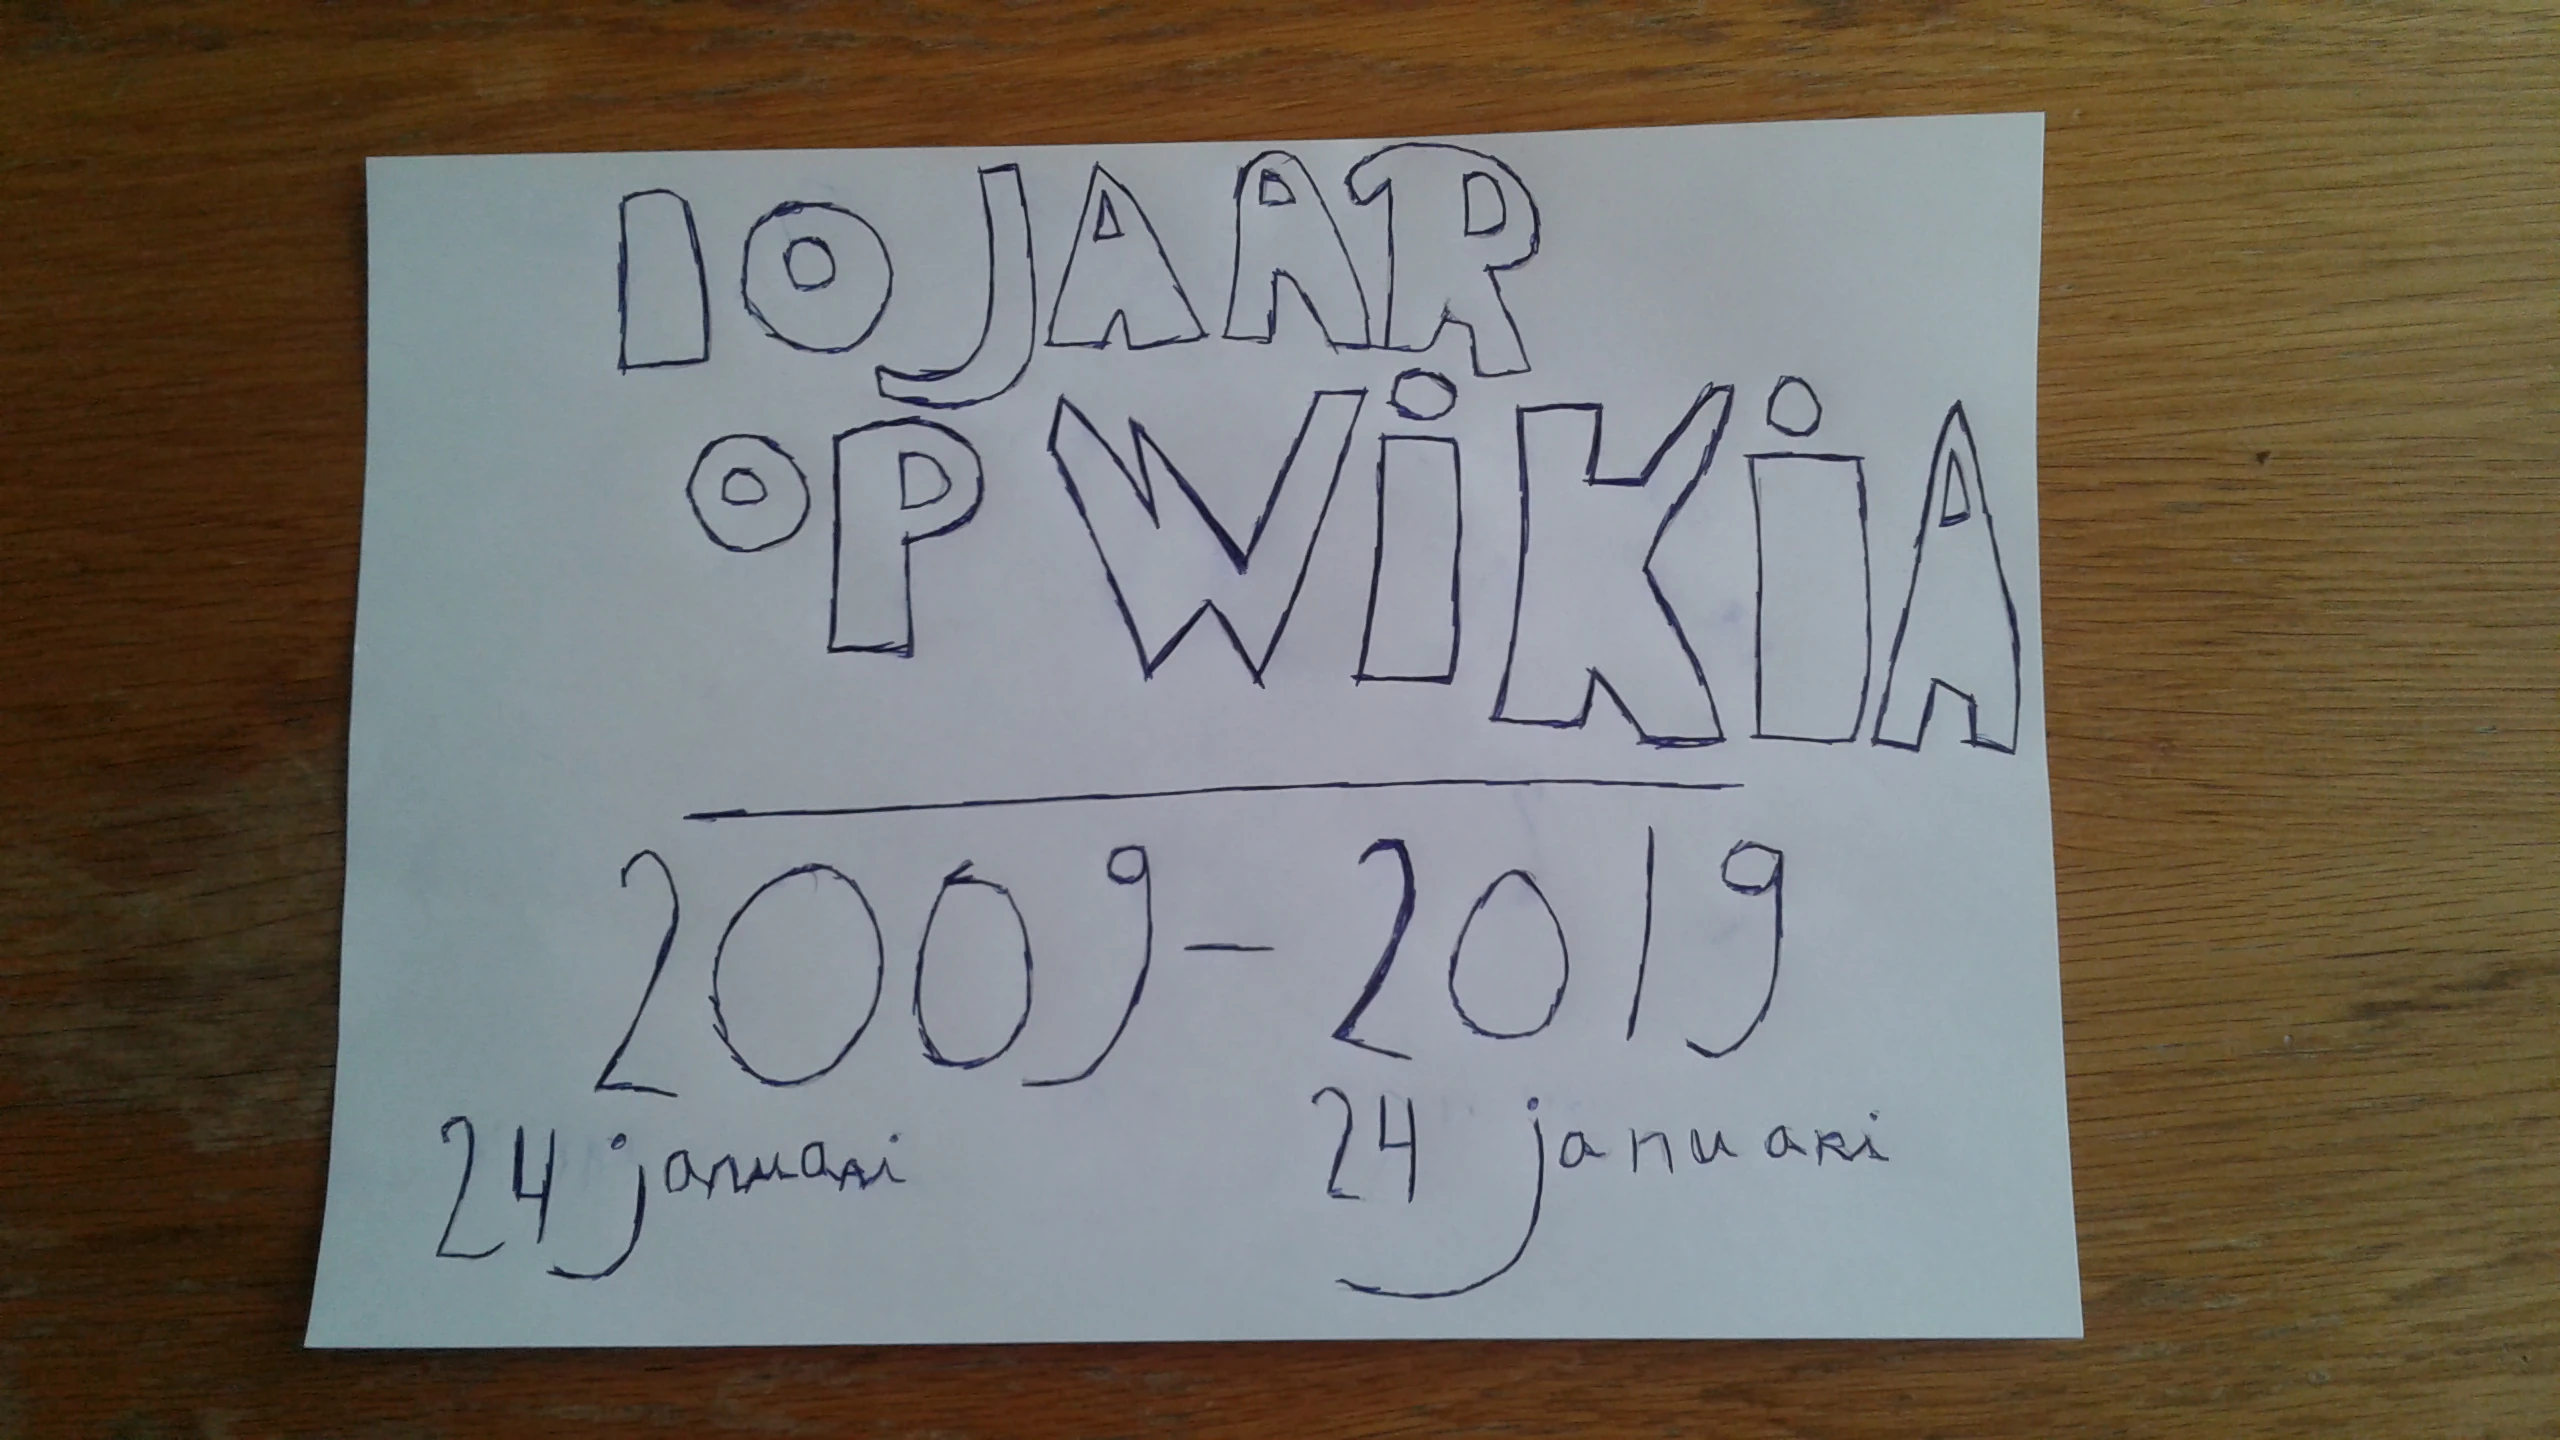 10 JAAR
OP WiKiA
2009-2019
24 januari 24 januari